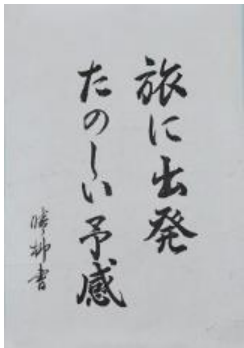 旅に出発
たのしい予感
勝柳書